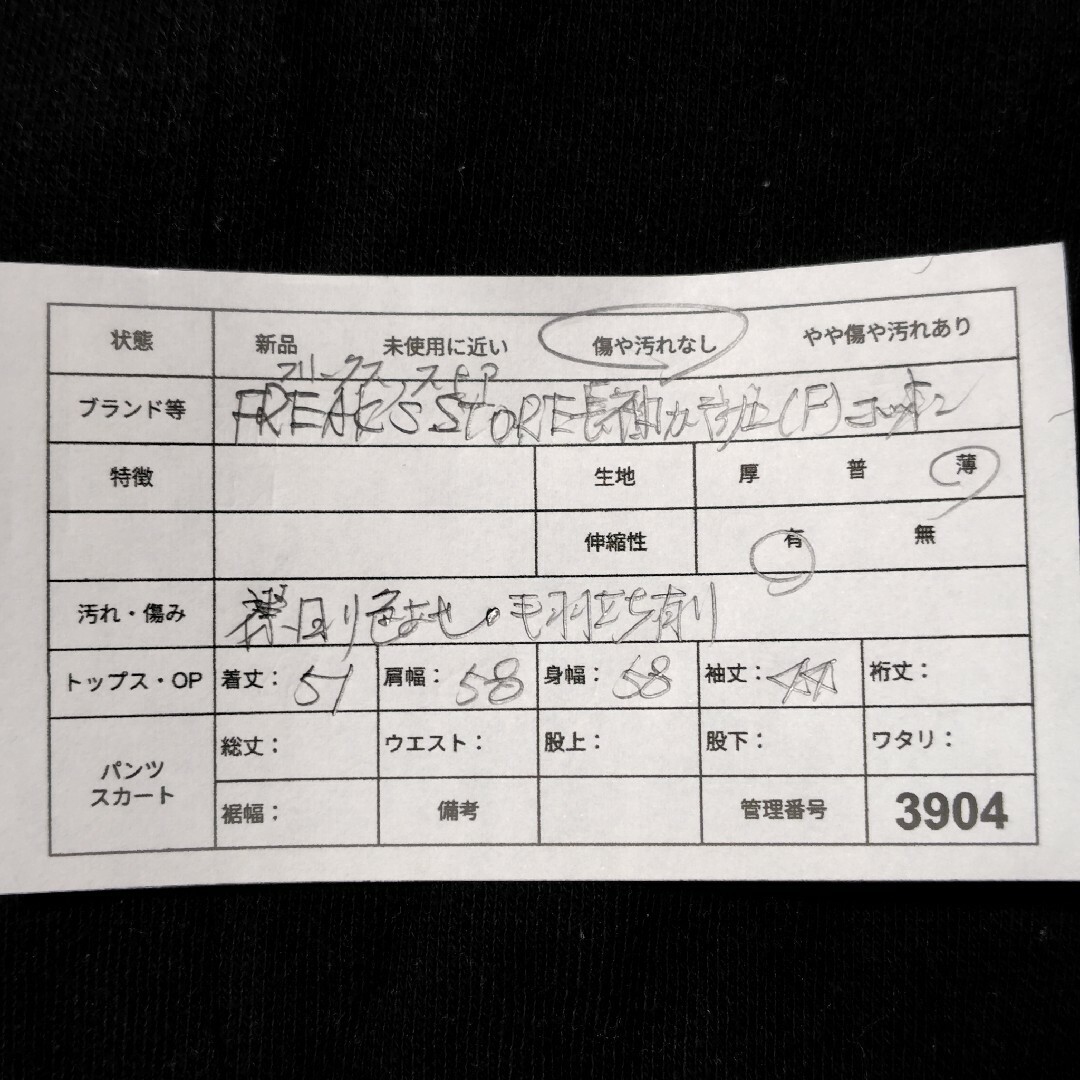 状態 新品 未使用に近い 傷や汚れなし やや傷や汚れあり
フリークス ストア
ブランド等 FREAK'S STORE 長袖 (F) コットン
特徴 生地 厚 普 薄
伸縮性 有 無
汚れ・傷み 襟回り色あせ。毛羽立ち有り
トップス・OP 着丈: 51 肩幅: 58 身幅: 58 袖丈: 裄丈:
パンツ スカート 総丈: ウエスト: 股上: 股下: ワタリ:
裾幅: 備考 管理番号 3904